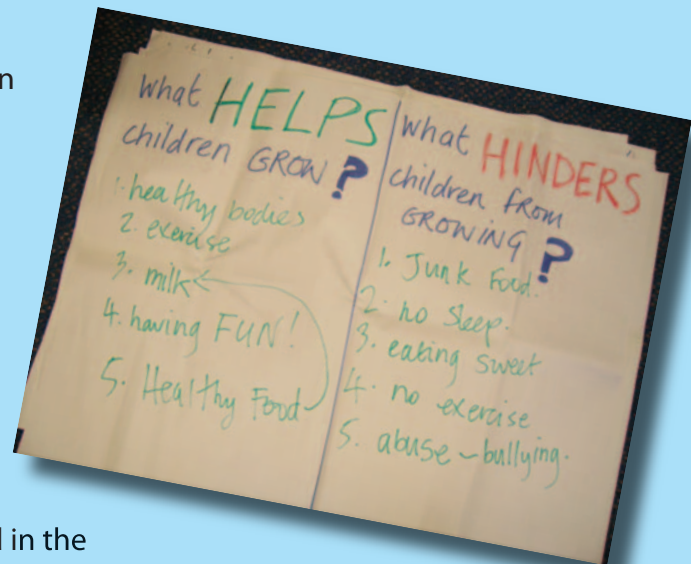 n
What HELPS
children GROW?
1. healthy bodies
2. exercise
3. milk
4. having FUN!
5. Healthy Food
What HINDERS
children from
GROWING?
1. Junk Food.
2. no Sleep.
3. eating sweet
4. no exercise
5. abuse - bullying.
in the